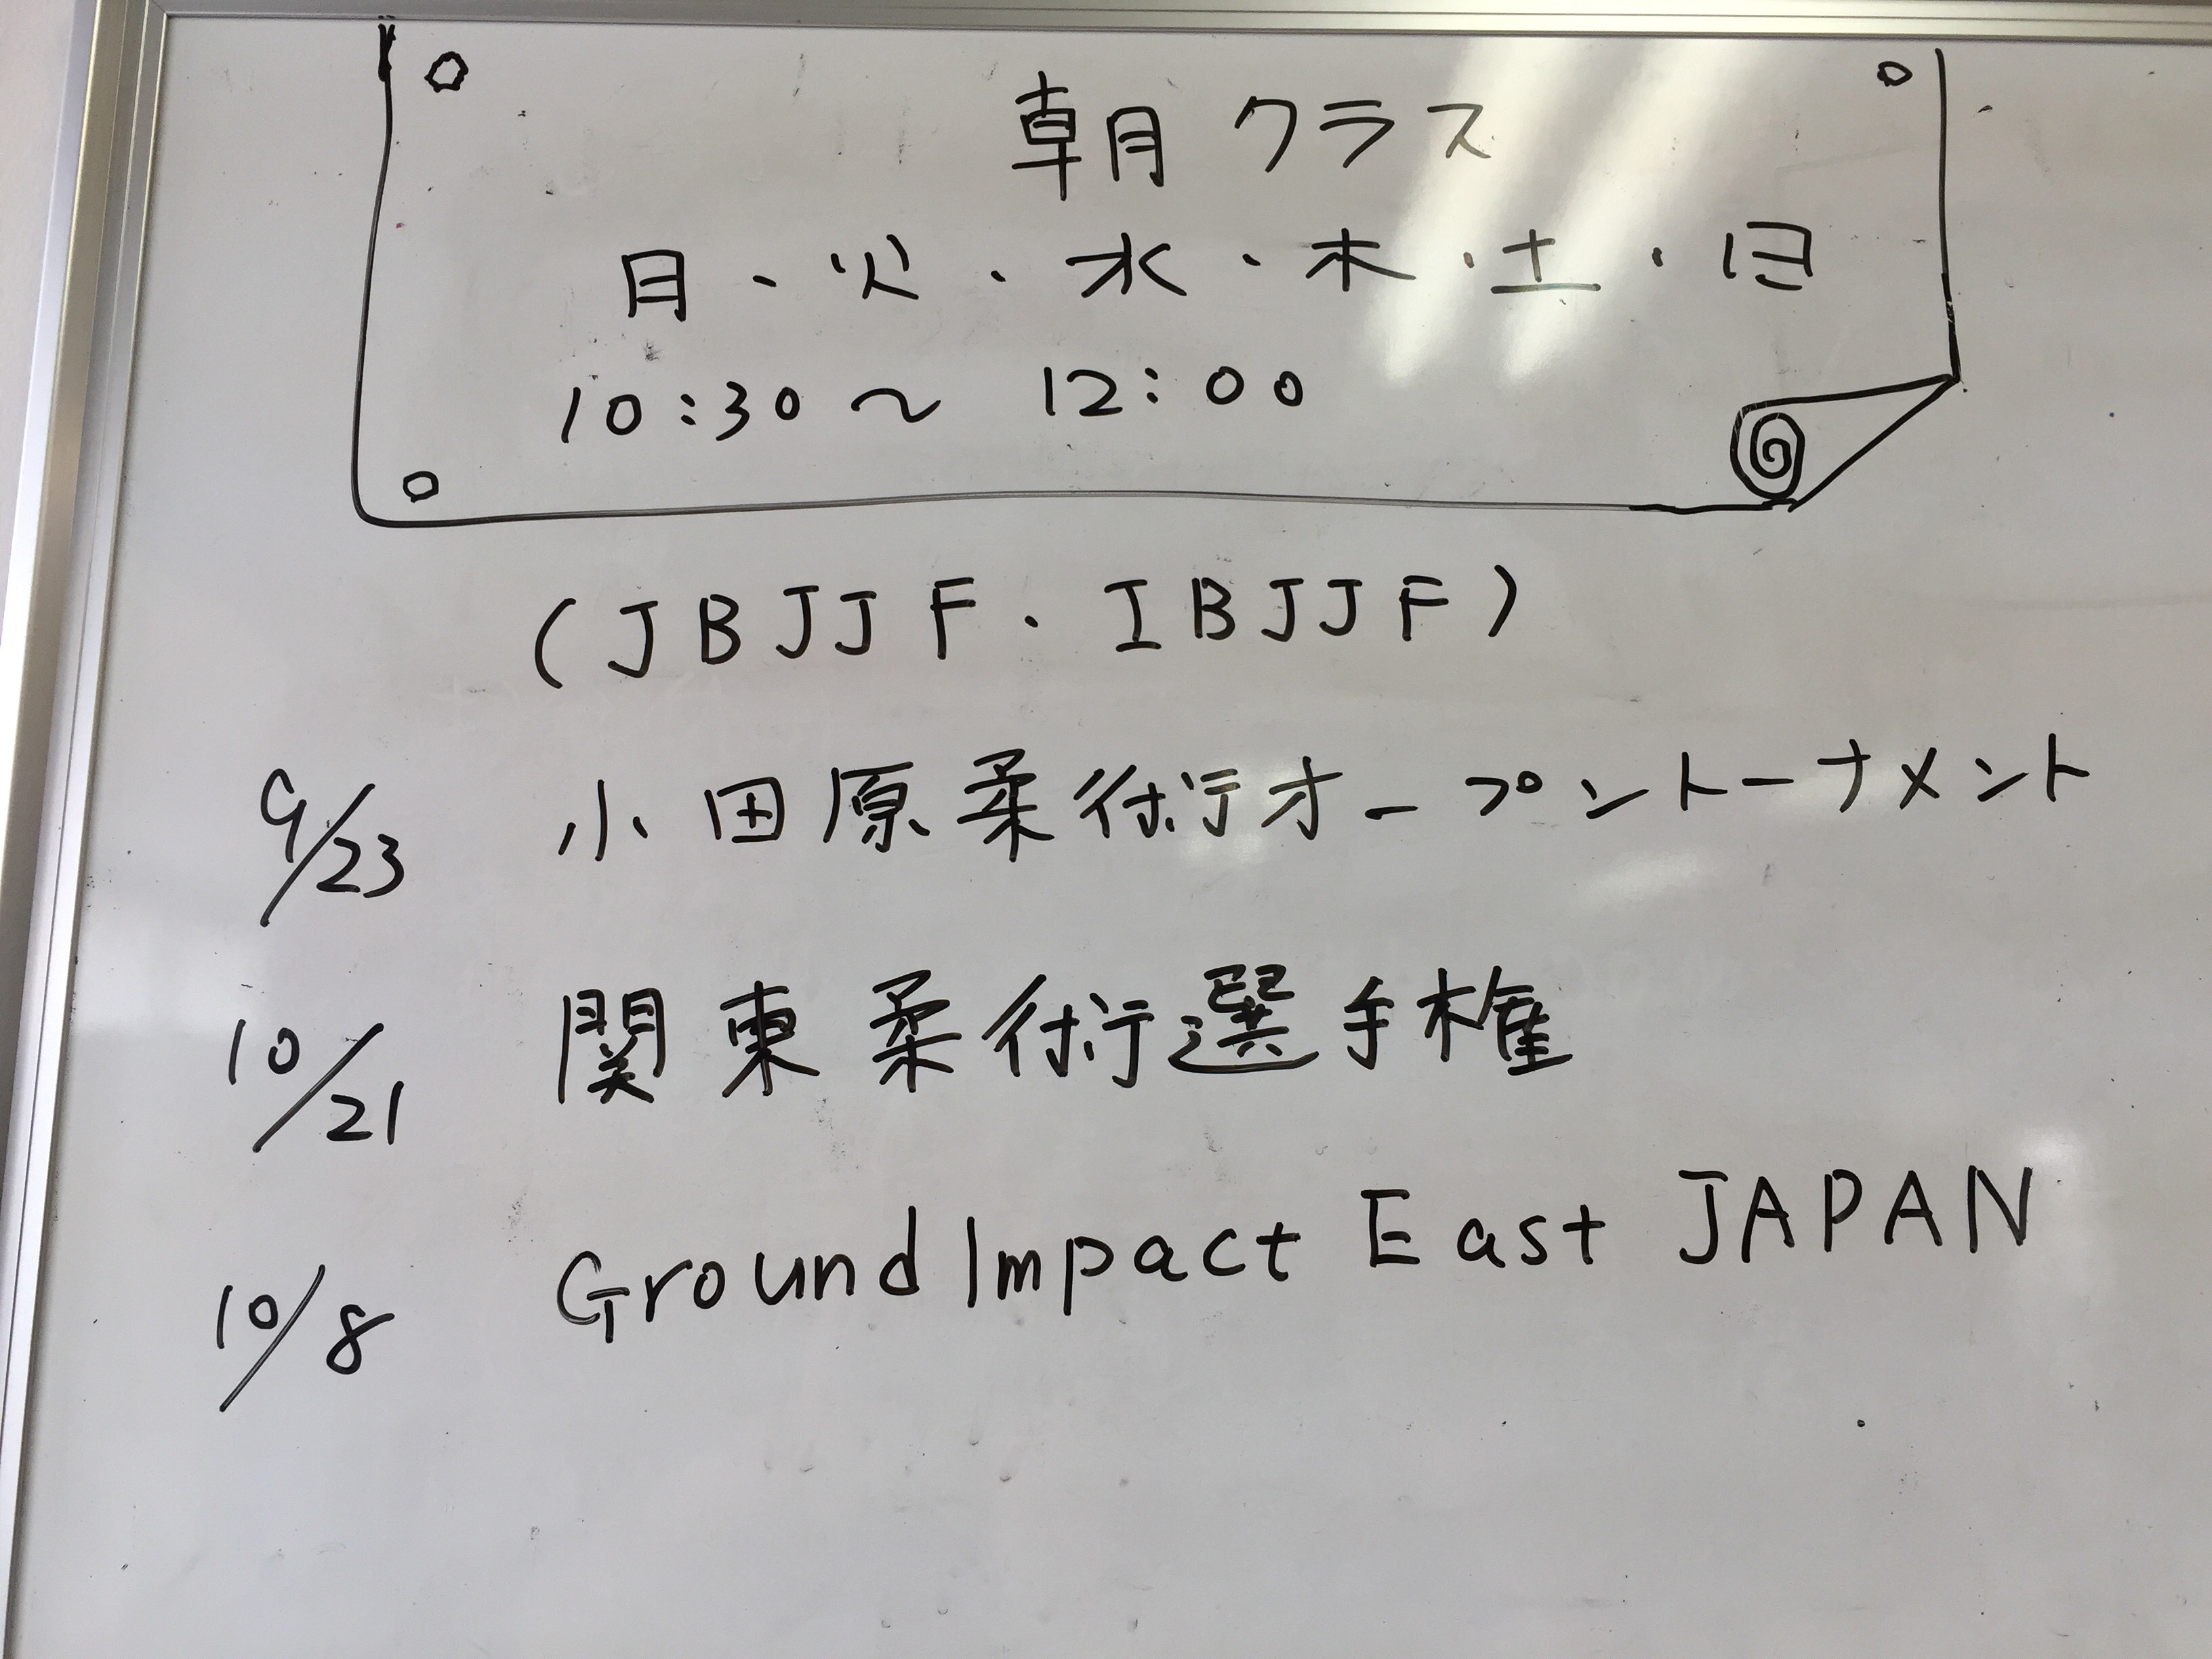 朝クラス
月・火・水・木・土・日
10:30～12:00
(JBJJF・IBJJF)
9/23 小田原柔術オープントーナメント
10/21 関東柔術選手権
10/8 Ground Impact East JAPAN